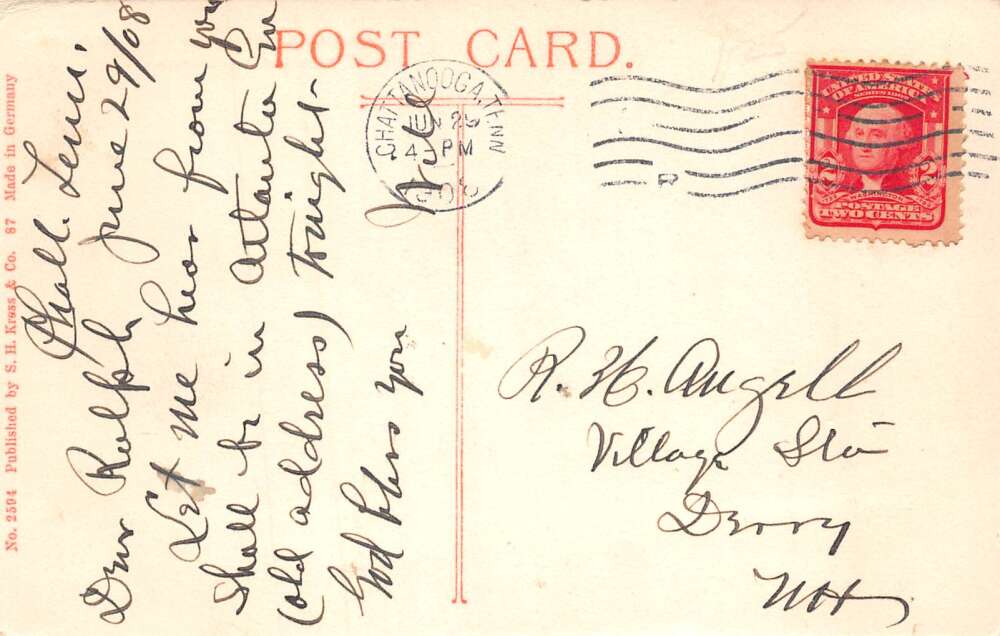 POST CARD.
No. 2594 Published by S. H. Kress & Co. 87 Made in Germany
CHATTANOOGA, TENN
JUN 29
4 - PM
1908
UNITED STATES
OF AMERICA
SERIES 1902
WASHINGTON
2 2
POSTAGE
TWO CENTS
Chatt. Tenn.
June 29/08
Dear Ralph
Let me hear from you
Shall be in Atlanta Ga
(old address) tonight-
God bless you
R. H. Angell
Village Sta
Derry
NH